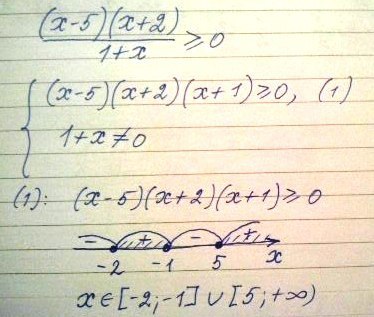 (x-5)(x+2)
1+x ⩾0
(x-5)(x+2)(x+1)⩾0, (1)
1+x≠0
(1): (x-5)(x+2)(x+1)⩾0
- + - +
-2 -1 5 x
x∈[-2;-1]∪[5;+∞)